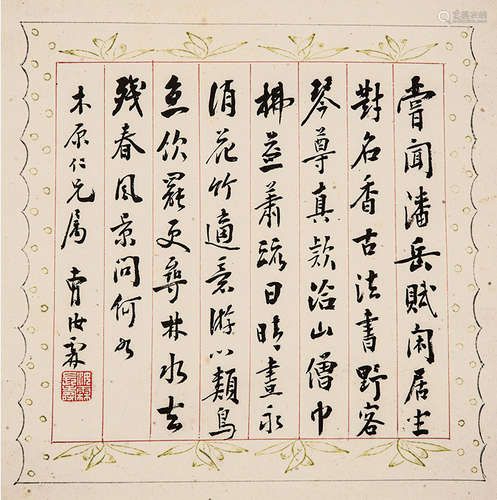 嘗聞潘岳賦閑居坐
對名香古法書野客
琴尊真款洽山僧巾
拂並蕭疏日晴晝永
消花竹適意游心類鳥
魚飲罷更尋林水去
殘春風景問何如
木原仁兄屬 曹汝霖